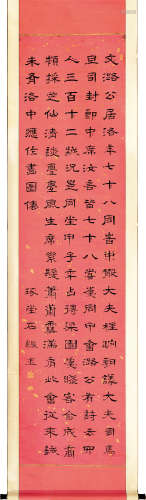 文潞公居洛年七十八同時中散大夫程珦朝議大夫司馬
旦司封郎中席汝言皆七十八嘗爲同甲會潞公有詩云四
人三百十二歲況是同生甲午年占得梁園爲賦客合成商
嶺採芝仙清談亹亹風生席素髮蕭蕭雪滿肩此會從來誠
未有洛中應作畫圖傳
琢堂石韞玉